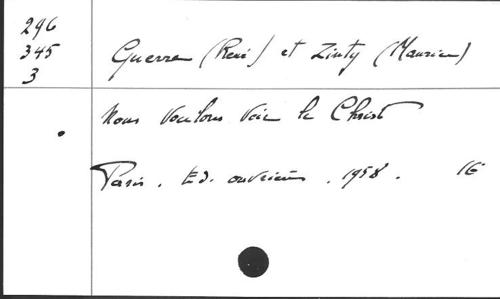 296
345
3
Guerre (René) et Zinty (Maurice)
Nous voulons voir le Christ
Paris. Ed. ouvrières. 1958. 1E